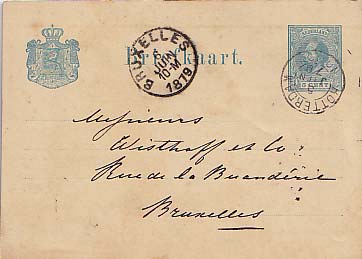 NEDERLAND
Briefkaart.
BRUXELLES
JUIN
10-M
1879
CENT
ROTTERDAM
Messieurs
Wisthoff et Co
Rue de la Buanderie
Bruxelles